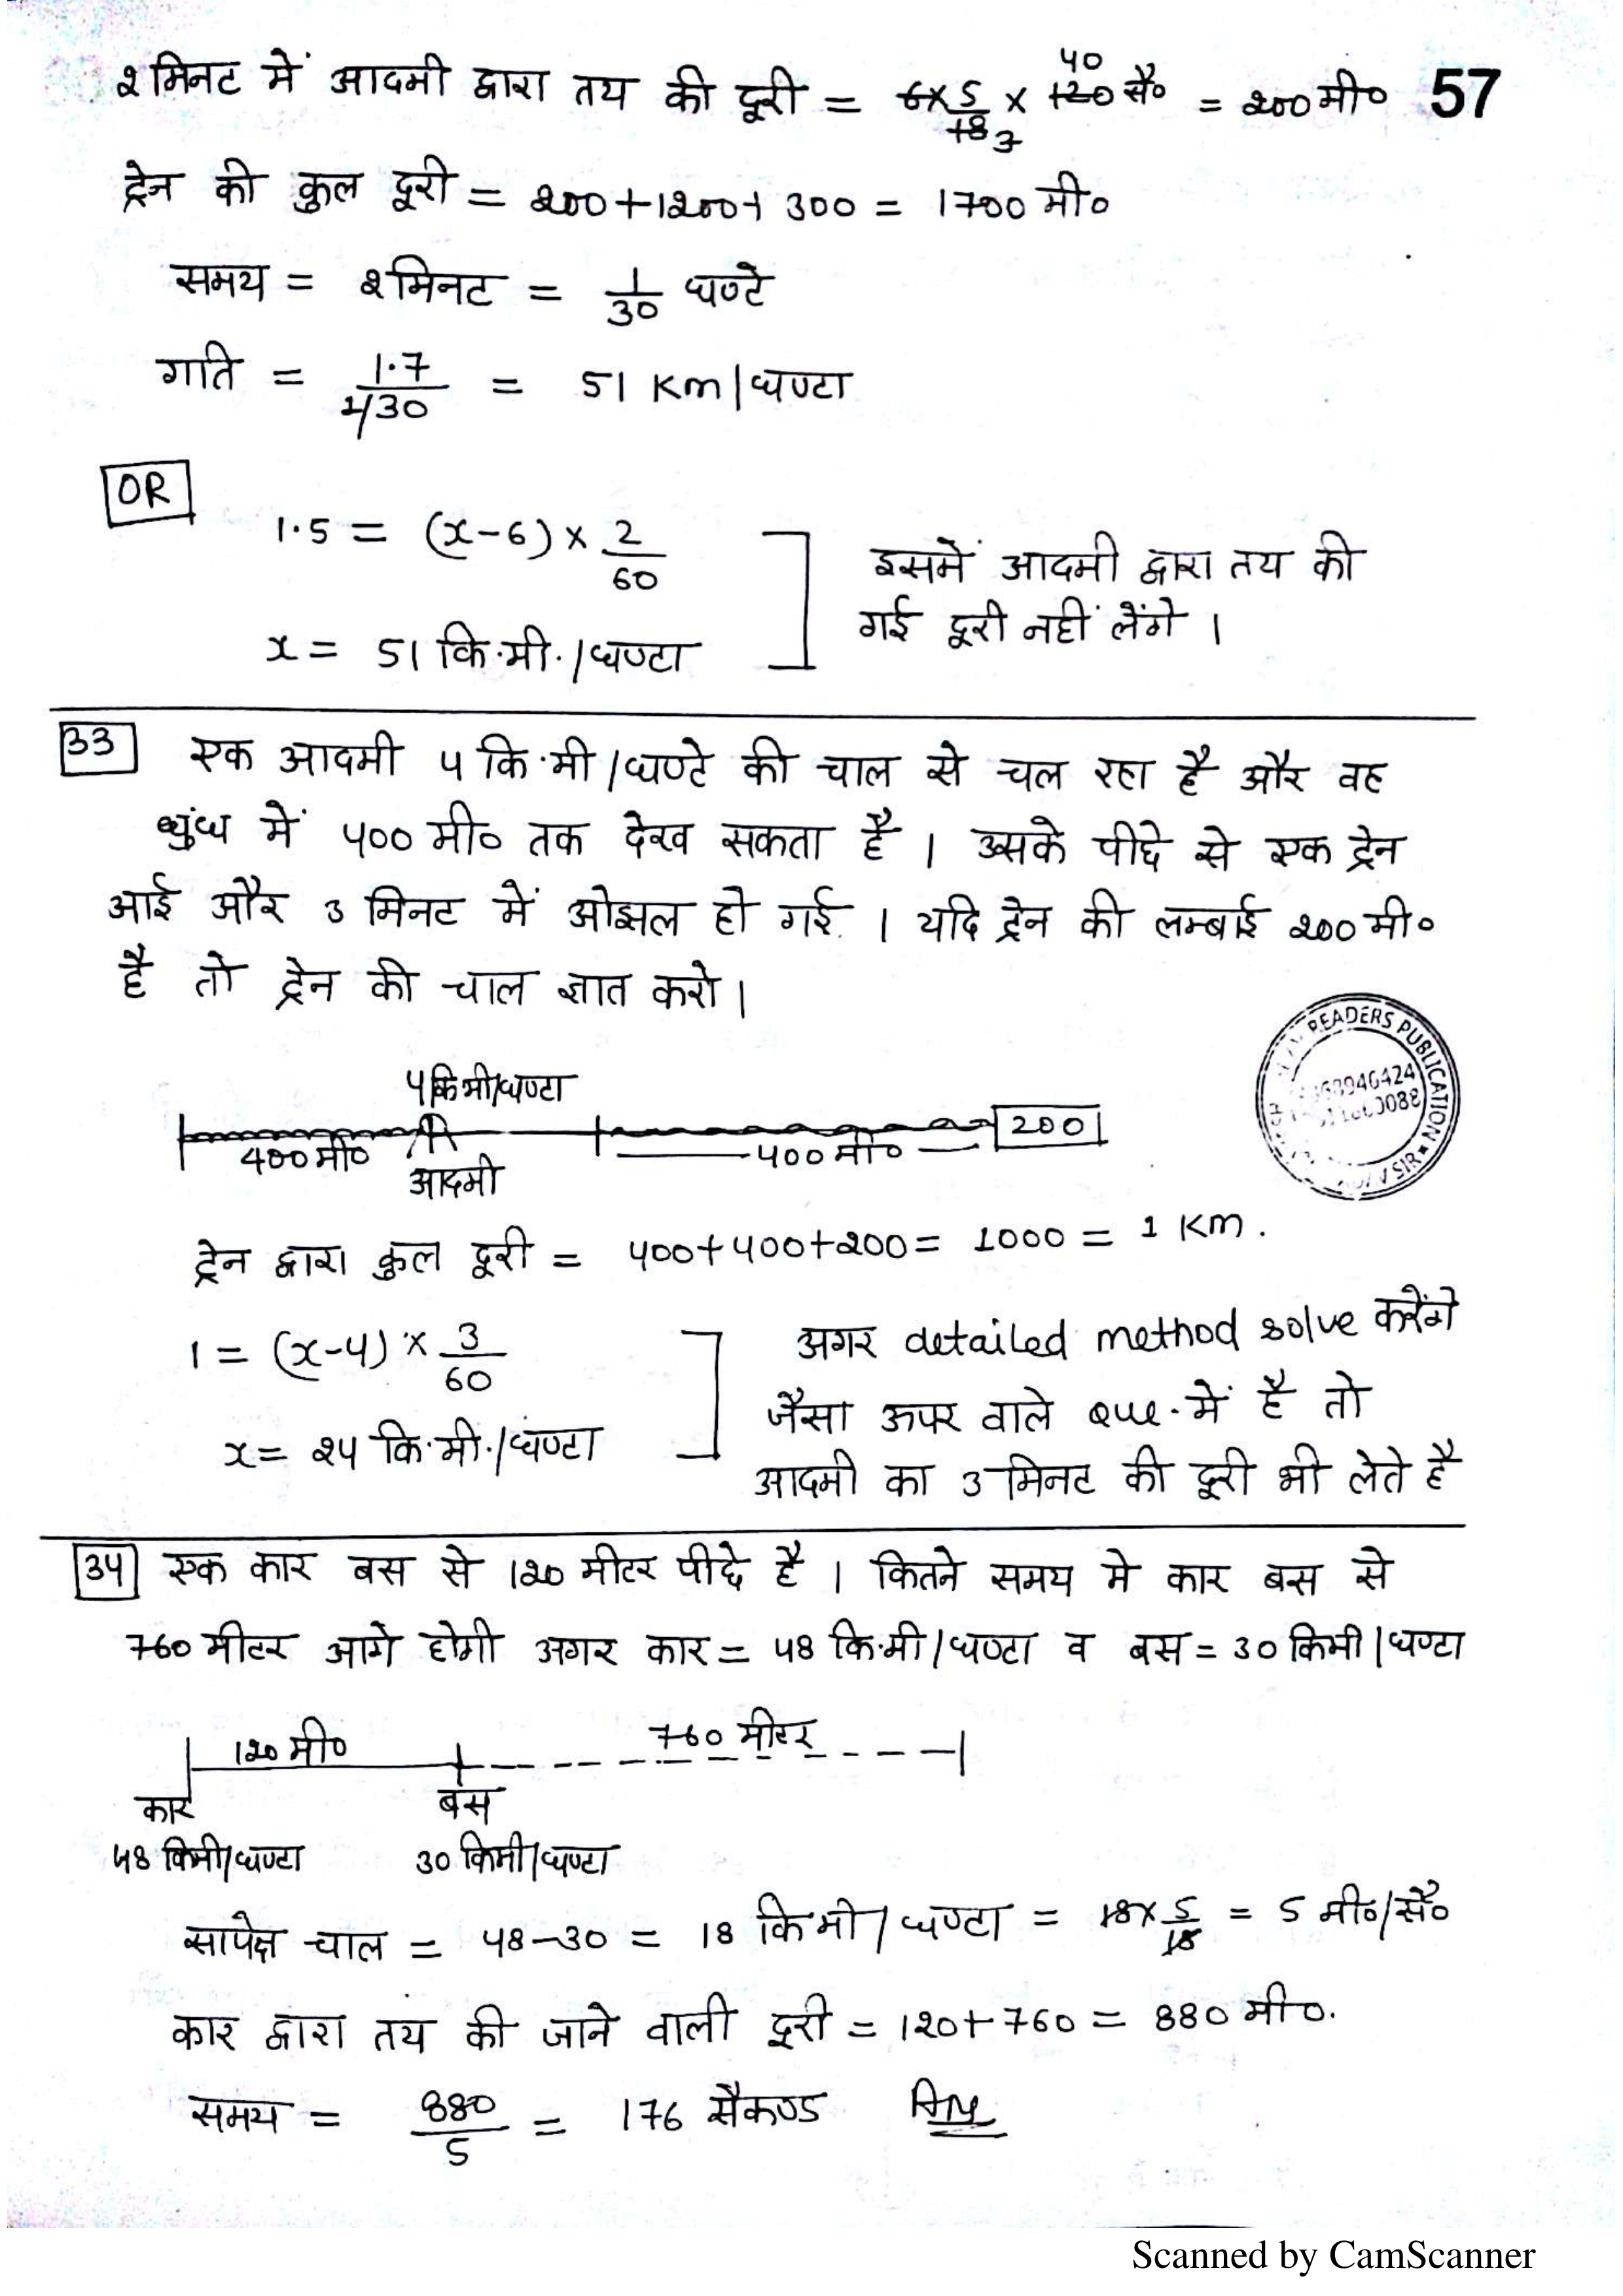 २ मिनट में आदमी द्वारा तय की दूरी = 6 × 5/18 3 × 120 40 सै० = २00 मी० 57
ट्रेन की कुल दूरी = २00 + 1२00 + 300 = 1700 मी०
समय = २ मिनट = 1/30 घण्टे
गति = 1.7/1/30 = 51 Km/घण्टा
OR
1.5 = (x-6) × 2/60
इसमें आदमी द्वारा तय की
गई दूरी नहीं लेंगे ।
x = 51 कि.मी./घण्टा
33 एक आदमी 4 कि.मी/घण्टे की चाल से चल रहा है और वह
धुंध में 400 मी० तक देख सकता है । उसके पीछे से एक ट्रेन
आई और 3 मिनट में ओझल हो गई । यदि ट्रेन की लम्बाई २00 मी०
है तो ट्रेन की चाल ज्ञात करो ।
4 कि मी/घण्टा
400 मी० आदमी 400 मी० 200
READERS PUBLICATION
SIR
ट्रेन द्वारा कुल दूरी = 400+400+२00 = 1000 = 1 Km.
1 = (x-4) × 3/60
x = २4 कि.मी./घण्टा
अगर detailed method solve करेंगे
जैसा ऊपर वाले Que. में है तो
आदमी का 3 मिनट की दूरी भी लेते है
34 एक कार बस से 1२0 मीटर पीछे है । कितने समय मे कार बस से
760 मीटर आगे होगी अगर कार = 48 कि.मी/घण्टा व बस = 30 किमी/घण्टा
1२0 मी० 760 मीटर
कार बस
48 किमी/घण्टा 30 किमी/घण्टा
सापेक्ष चाल = 48-30 = 18 कि मी/घण्टा = 18 × 5/18 = 5 मी०/सै०
कार द्वारा तय की जाने वाली दूरी = 1२0 + 760 = 880 मी०.
समय = 880/5 = 176 सैकण्ड Ans
Scanned by CamScanner